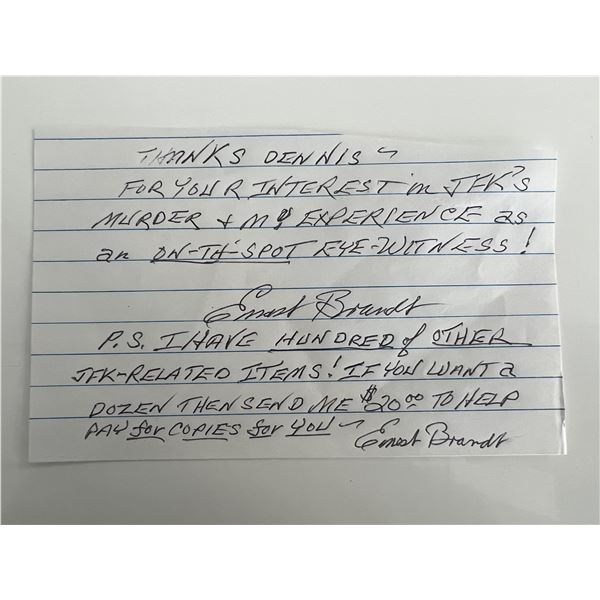 THANKS DENNIS ~
FOR YOUR INTEREST in JFK'S
MURDER + MY EXPERIENCE as
an ON-TH'-SPOT EYE-WITNESS!
Ernest Brandt
P.S. I HAVE HUNDRED of OTHER
JFK-RELATED ITEMS! IF YOU WANT a
DOZEN THEN SEND ME $20.00 TO HELP
PAY for COPIES for YOU ~ Ernest Brandt